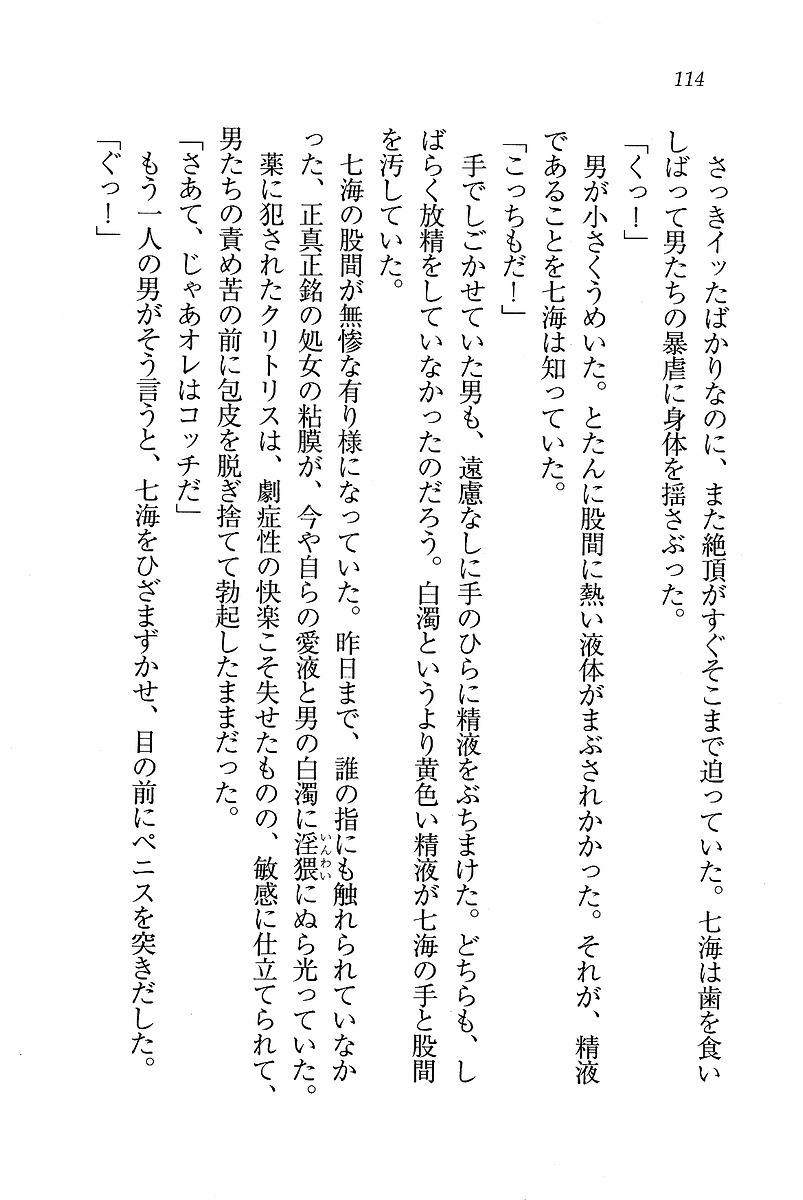 114
さっきイッたばかりなのに、また絶頂がすぐそこまで迫っていた。七海は歯を食い
しばって男たちの暴虐に身体を揺さぶった。
「くっ！」
男が小さくうめいた。とたんに股間に熱い液体がまぶされかかった。それが、精液
であることを七海は知っていた。
「こっちもだ！」
手でしごかせていた男も、遠慮なしに手のひらに精液をぶちまけた。どちらも、し
ばらく放精をしていなかったのだろう。白濁というより黄色い精液が七海の手と股間
を汚していた。
七海の股間が無惨な有り様になっていた。昨日まで、誰の指にも触れられていなか
った、正真正銘の処女の粘膜が、今や自らの愛液と男の白濁に淫猥いんわいにぬら光っていた。
薬に犯されたクリトリスは、劇症性の快楽こそ失せたものの、敏感に仕立てられて、
男たちの責め苦の前に包皮を脱ぎ捨てて勃起したままだった。
「さあて、じゃあオレはコッチだ」
もう一人の男がそう言うと、七海をひざまずかせ、目の前にペニスを突きだした。
「ぐっ！」